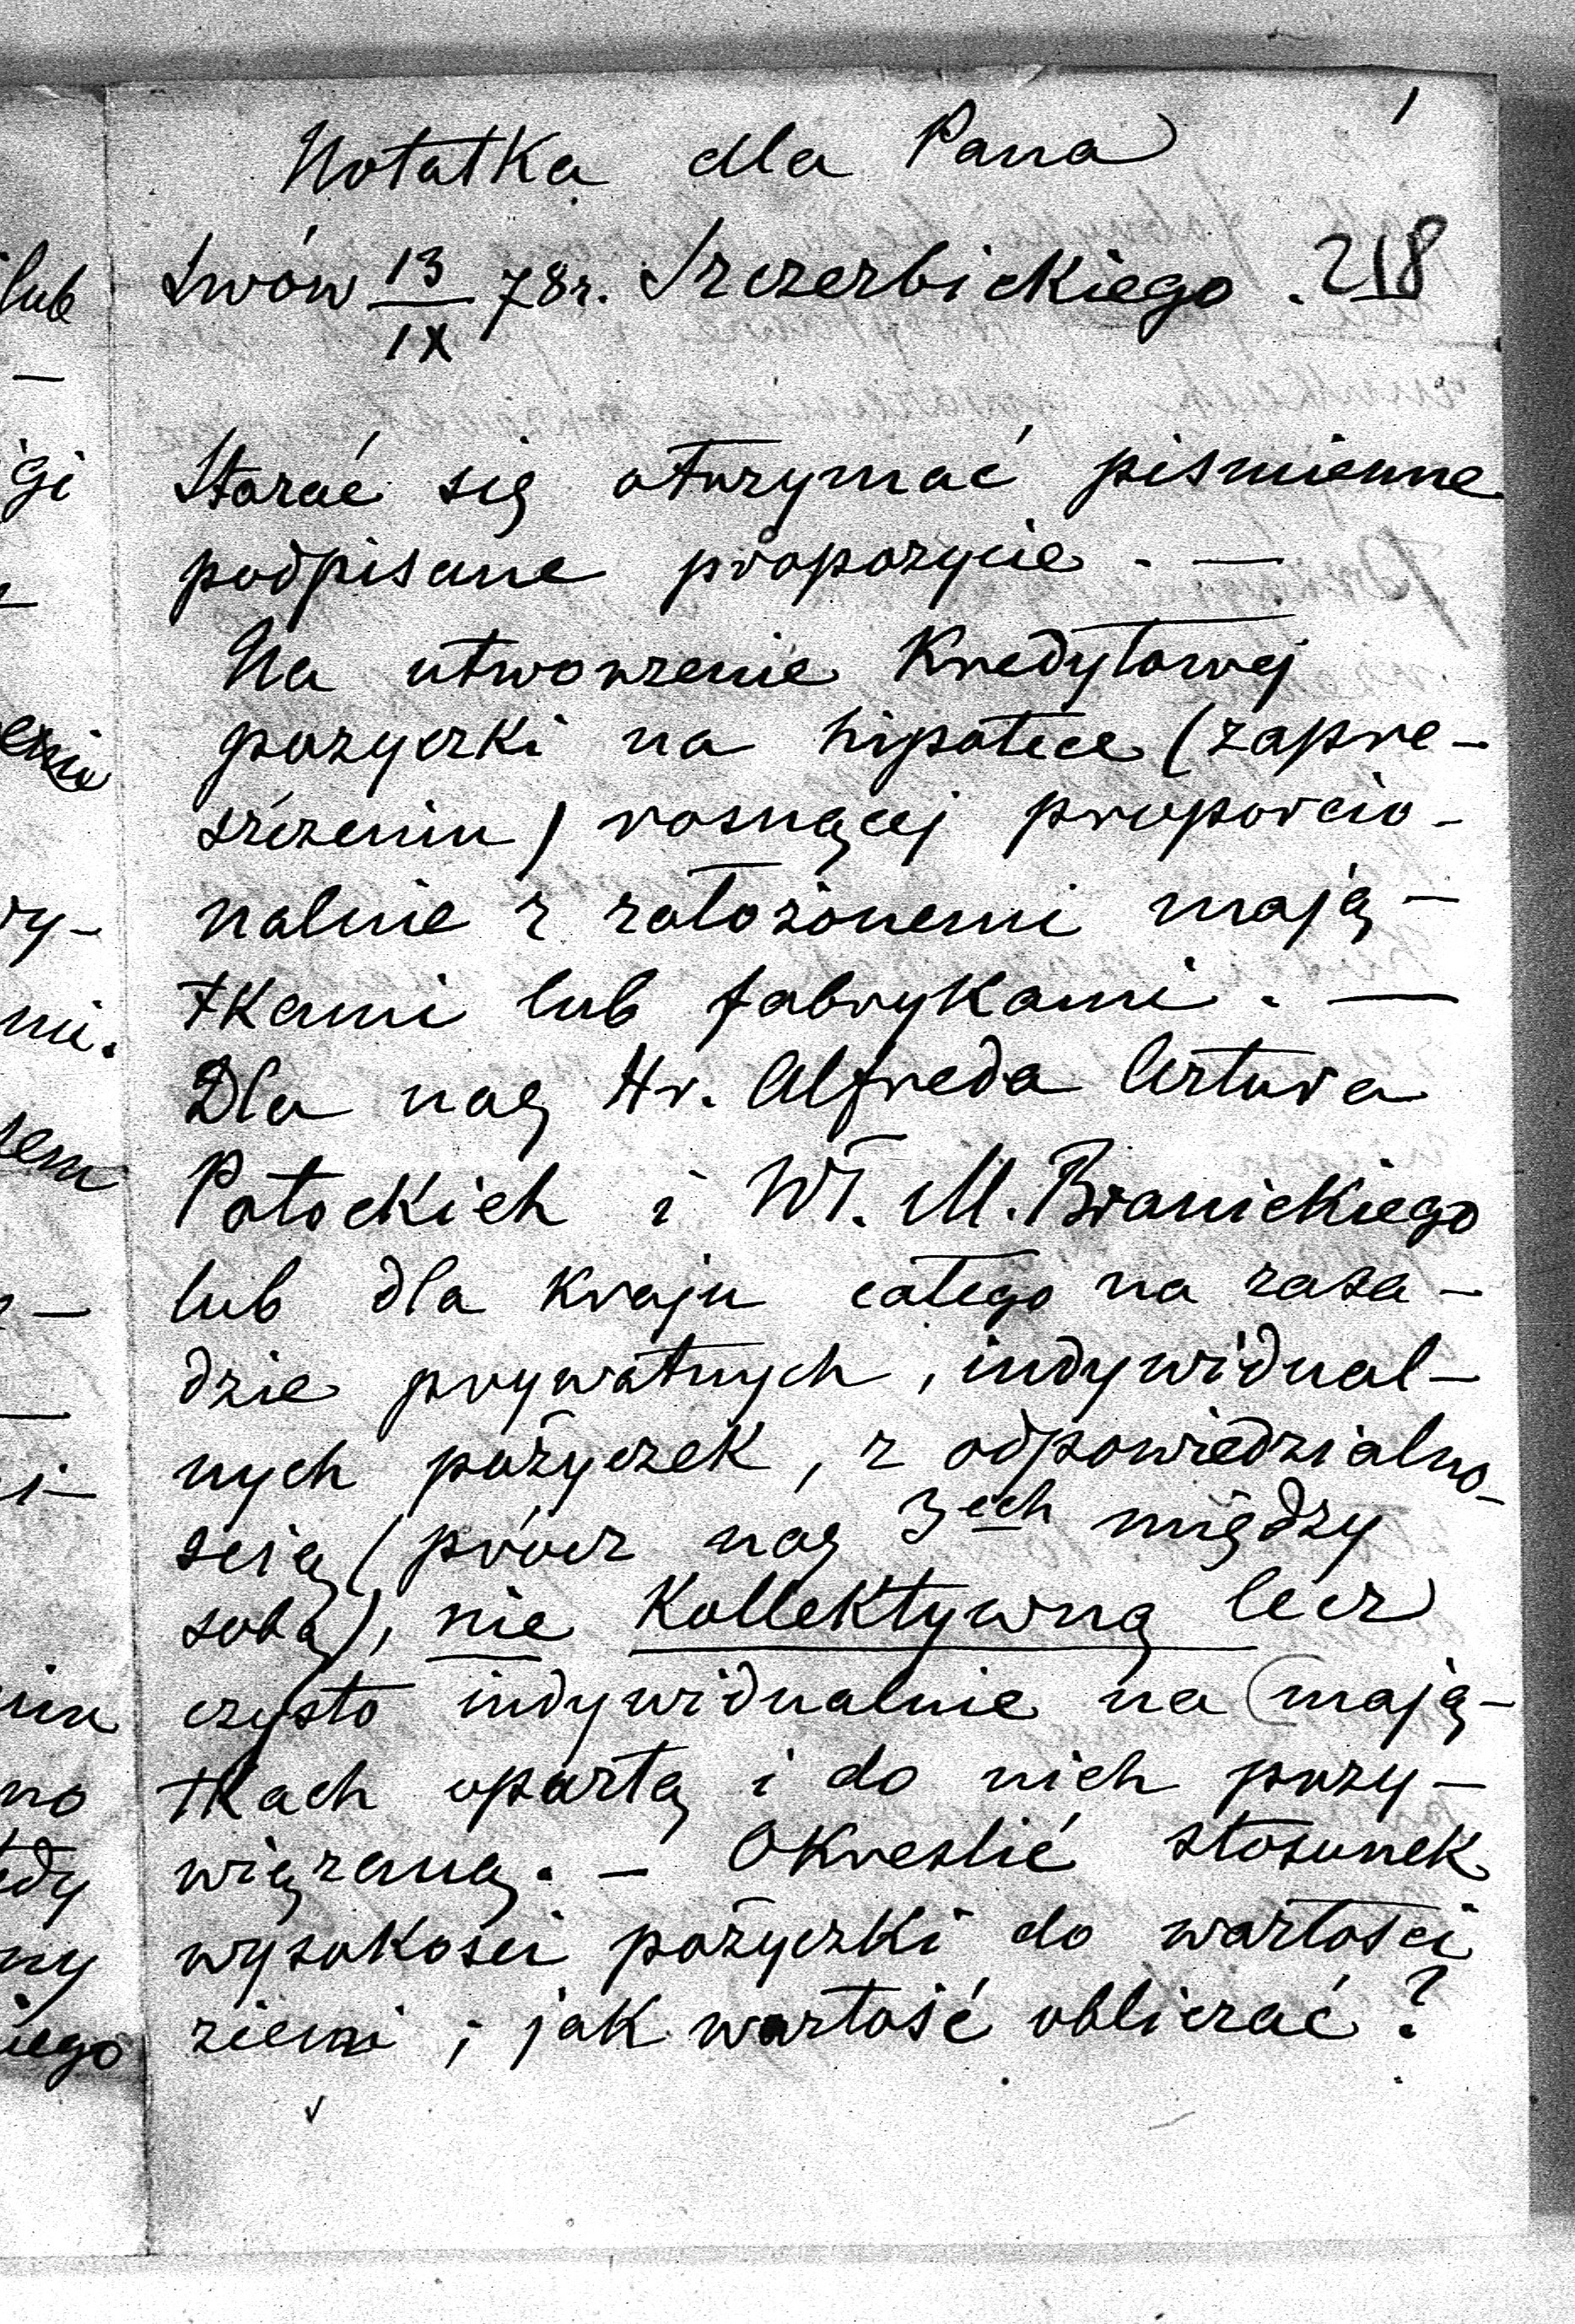 1
Notatka dla Pana
Lwów 13/IX 78r. Szczerbickiego. 218
Starać się otrzymać piśmienne
podpisane propozycie. —
Na utworzenie Kredytowej
pożyczki na hipotece (zapre-
szczeniu) rosnącej proporcio-
nalnie z założonemi mają-
tkami lub fabrykami. —
Dla nas Hr. Alfreda Artura
Potockich i Wł. M. Branickiego
lub dla kraju całego na zasa-
dzie prywatnych, indywidual-
nych pożyczek, z odpowiedzialno-
ścią (prócz nas 3ech między
sobą), nie Kollektywną lecz
czysto indywidualnie na mają-
tkach opartą i do nich przy-
wiązaną. — Określić stosunek
wysokości pożyczki do wartości
ziemi; jak wartość obliczać?
lub
gi
ry-
mi.
no
ny
iego